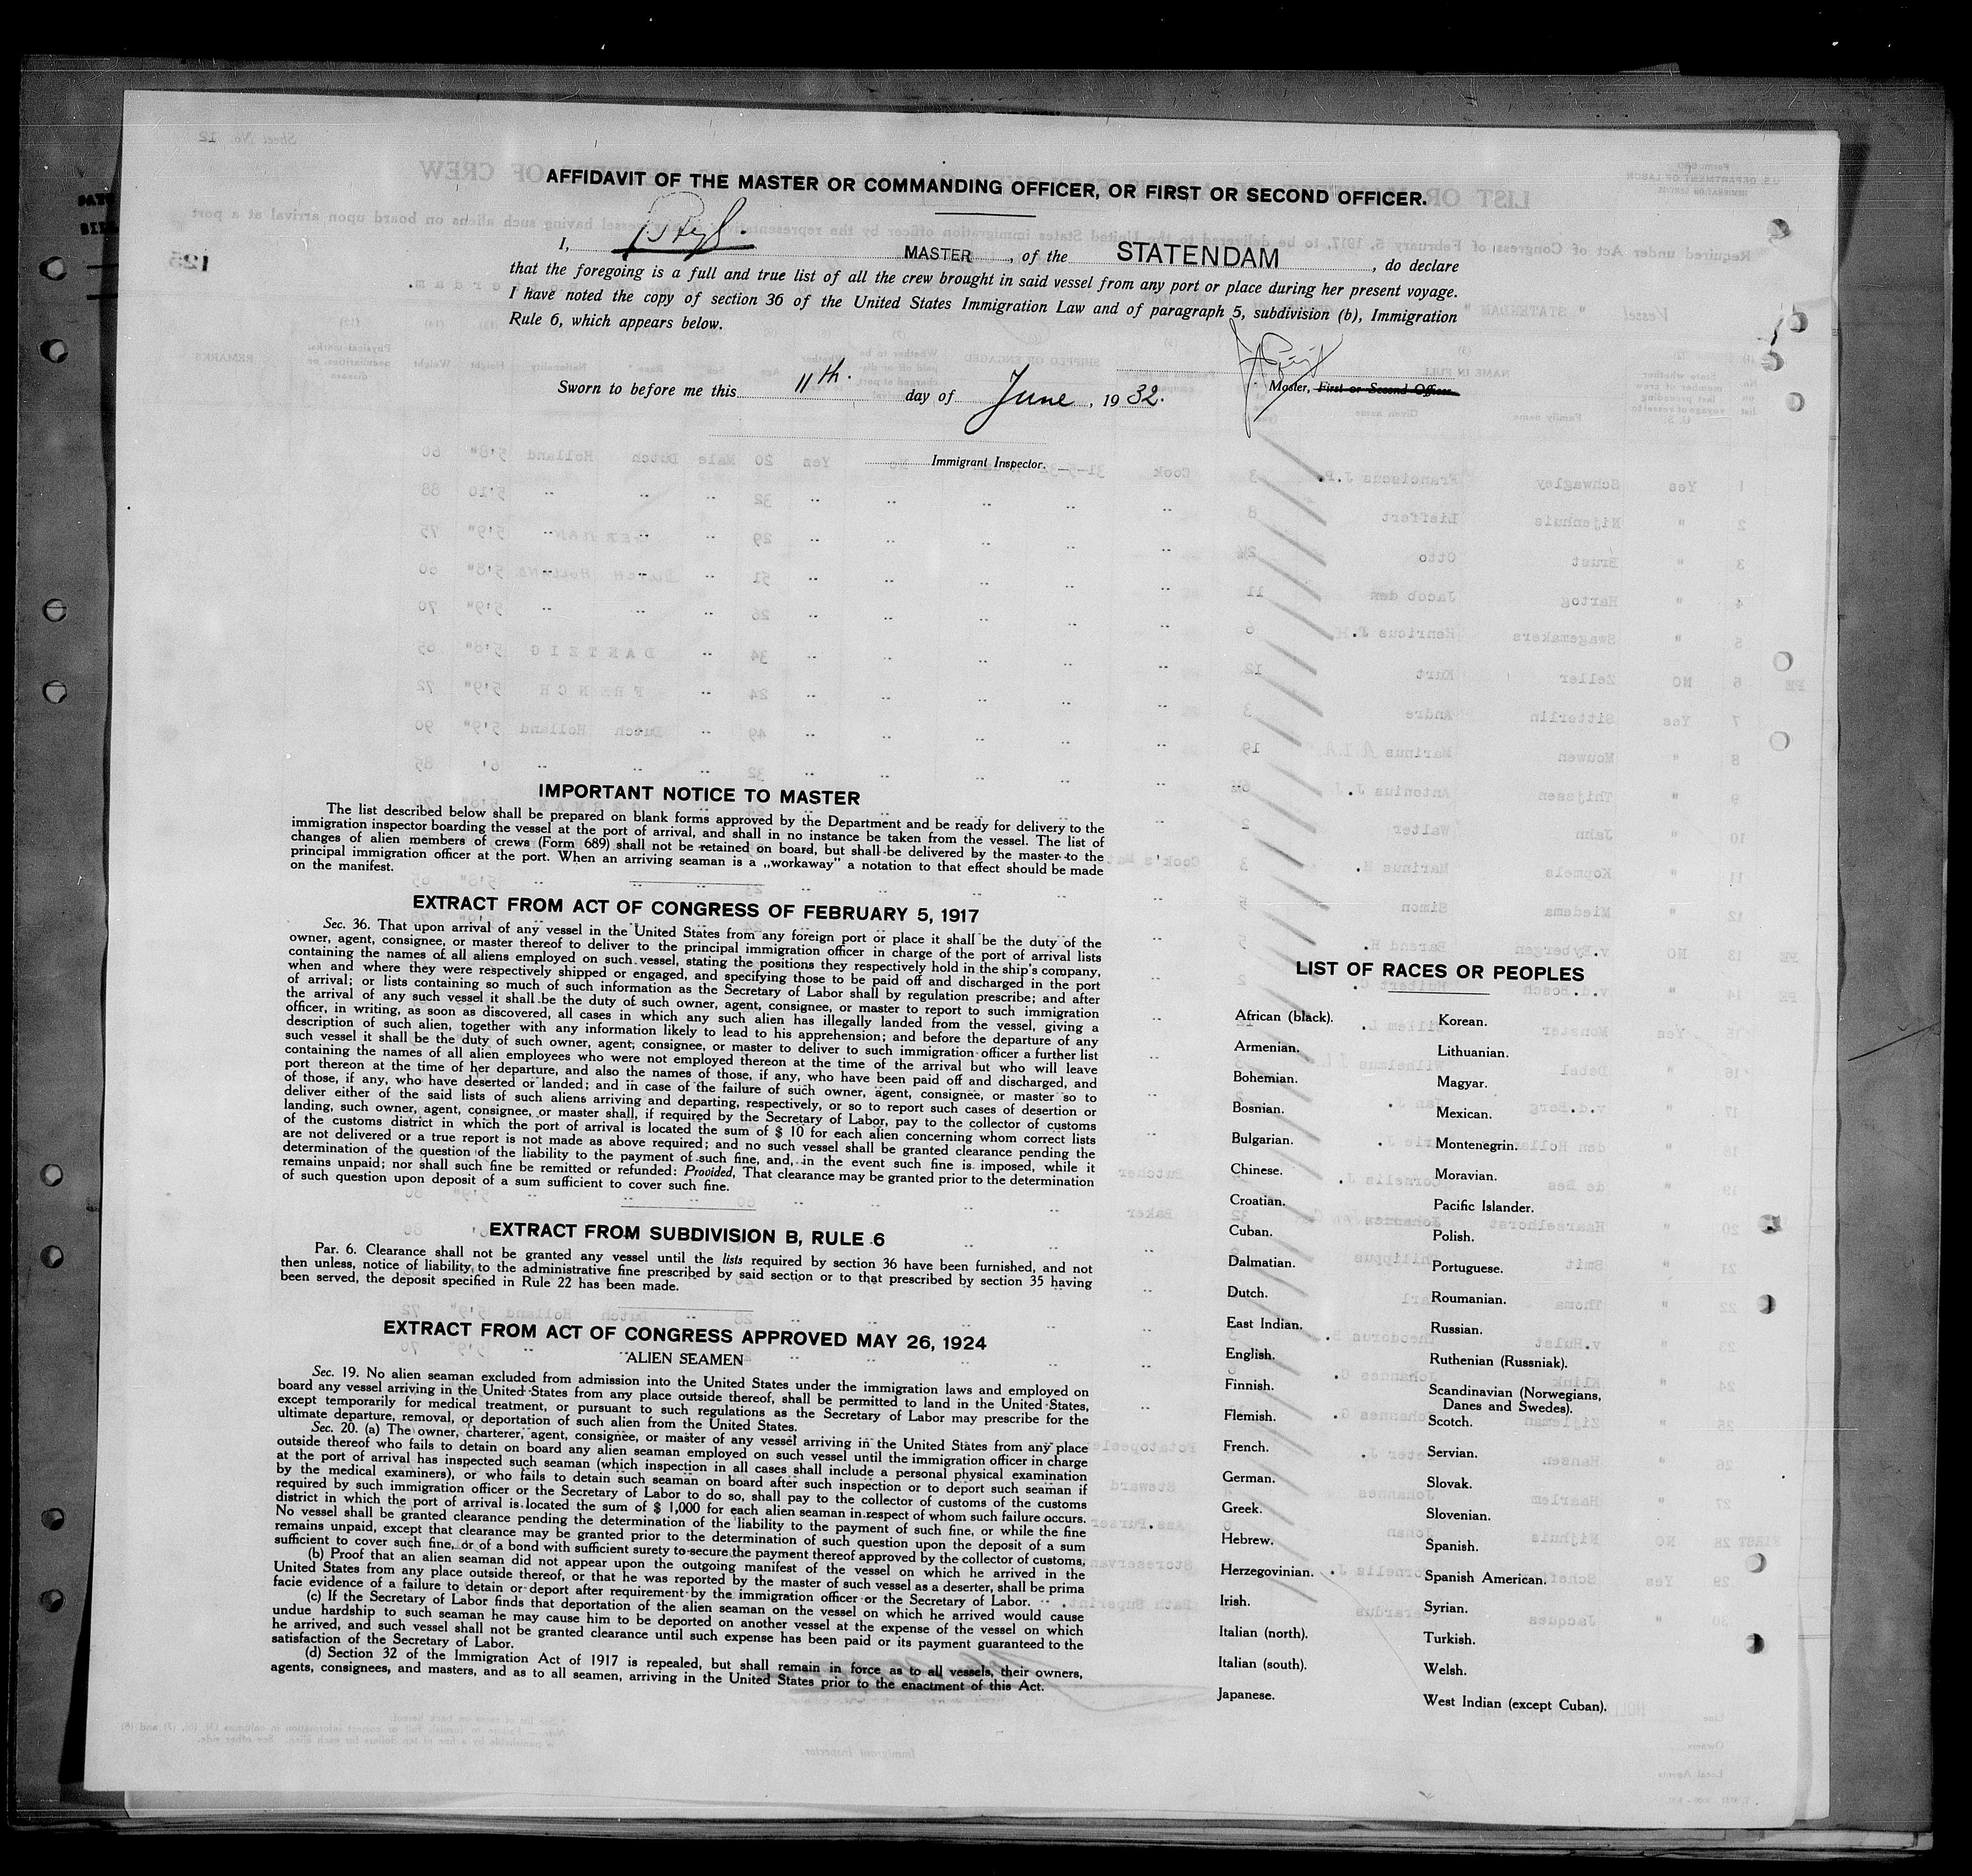 AFFIDAVIT OF THE MASTER OR COMMANDING OFFICER, OR FIRST OR SECOND OFFICER.
I, MASTER, of the STATENDAM, do declare
that the foregoing is a full and true list of all the crew brought in said vessel from any port or place during her present voyage.
I have noted the copy of section 36 of the United States Immigration Law and of paragraph 5, subdivision (b), Immigration
Rule 6, which appears below.
Master, First or Second Officer.
Sworn to before me this 11th. day of June, 1932.
Immigrant Inspector.
IMPORTANT NOTICE TO MASTER
The list described below shall be prepared on blank forms approved by the Department and be ready for delivery to the
immigration inspector boarding the vessel at the port of arrival, and shall in no instance be taken from the vessel. The list of
changes of alien members of crews (Form 689) shall not be retained on board, but shall be delivered by the master to the
principal immigration officer at the port. When an arriving seaman is a „workaway” a notation to that effect should be made
on the manifest.
EXTRACT FROM ACT OF CONGRESS OF FEBRUARY 5, 1917
Sec. 36. That upon arrival of any vessel in the United States from any foreign port or place it shall be the duty of the
owner, agent, consignee, or master thereof to deliver to the principal immigration officer in charge of the port of arrival lists
containing the names of all aliens employed on such vessel, stating the positions they respectively hold in the ship's company,
when and where they were respectively shipped or engaged, and specifying those to be paid off and discharged in the port
of arrival; or lists containing so much of such information as the Secretary of Labor shall by regulation prescribe; and after
the arrival of any such vessel it shall be the duty of such owner, agent, consignee, or master to report to such immigration
officer, in writing, as soon as discovered, all cases in which any such alien has illegally landed from the vessel, giving a
description of such alien, together with any information likely to lead to his apprehension; and before the departure of any
such vessel it shall be the duty of such owner, agent, consignee, or master to deliver to such immigration officer a further list
containing the names of all alien employees who were not employed thereon at the time of the arrival but who will leave
port thereon at the time of her departure, and also the names of those, if any, who have been paid off and discharged, and
of those, if any, who have deserted or landed; and in case of the failure of such owner, agent, consignee, or master so to
deliver either of the said lists of such aliens arriving and departing, respectively, or so to report such cases of desertion or
landing, such owner, agent, consignee, or master shall, if required by the Secretary of Labor, pay to the collector of customs
of the customs district in which the port of arrival is located the sum of $ 10 for each alien concerning whom correct lists
are not delivered or a true report is not made as above required; and no such vessel shall be granted clearance pending the
determination of the question of the liability to the payment of such fine, and, in the event such fine is imposed, while it
remains unpaid; nor shall such fine be remitted or refunded: Provided, That clearance may be granted prior to the determination
of such question upon deposit of a sum sufficient to cover such fine.
EXTRACT FROM SUBDIVISION B, RULE 6
Par. 6. Clearance shall not be granted any vessel until the lists required by section 36 have been furnished, and not
then unless, notice of liability to the administrative fine prescribed by said section or to that prescribed by section 35 having
been served, the deposit specified in Rule 22 has been made.
EXTRACT FROM ACT OF CONGRESS APPROVED MAY 26, 1924
ALIEN SEAMEN
Sec. 19. No alien seaman excluded from admission into the United States under the immigration laws and employed on
board any vessel arriving in the United States from any place outside thereof, shall be permitted to land in the United States,
except temporarily for medical treatment, or pursuant to such regulations as the Secretary of Labor may prescribe for the
ultimate departure, removal, or deportation of such alien from the United States.
Sec. 20. (a) The owner, charterer, agent, consignee, or master of any vessel arriving in the United States from any place
outside thereof who fails to detain on board any alien seaman employed on such vessel until the immigration officer in charge
at the port of arrival has inspected such seaman (which inspection in all cases shall include a personal physical examination
by the medical examiners), or who fails to detain such seaman on board after such inspection or to deport such seaman if
required by such immigration officer or the Secretary of Labor to do so, shall pay to the collector of customs of the customs
district in which the port of arrival is located the sum of $ 1,000 for each alien seaman in respect of whom such failure occurs.
No vessel shall be granted clearance pending the determination of the liability to the payment of such fine, or while the fine
remains unpaid, except that clearance may be granted prior to the determination of such question upon the deposit of a sum
sufficient to cover such fine, or of a bond with sufficient surety to secure the payment thereof approved by the collector of customs.
(b) Proof that an alien seaman did not appear upon the outgoing manifest of the vessel on which he arrived in the
United States from any place outside thereof, or that he was reported by the master of such vessel as a deserter, shall be prima
facie evidence of a failure to detain or deport after requirement by the immigration officer or the Secretary of Labor.
(c) If the Secretary of Labor finds that deportation of the alien seaman on the vessel on which he arrived would cause
undue hardship to such seaman he may cause him to be deported on another vessel at the expense of the vessel on which
he arrived, and such vessel shall not be granted clearance until such expense has been paid or its payment guaranteed to the
satisfaction of the Secretary of Labor.
(d) Section 32 of the Immigration Act of 1917 is repealed, but shall remain in force as to all vessels, their owners,
agents, consignees, and masters, and as to all seamen, arriving in the United States prior to the enactment of this Act.
LIST OF RACES OR PEOPLES
African (black).
Armenian.
Bohemian.
Bosnian.
Bulgarian.
Chinese.
Croatian.
Cuban.
Dalmatian.
Dutch.
East Indian.
English.
Finnish.
Flemish.
French.
German.
Greek.
Hebrew.
Herzegovinian.
Irish.
Italian (north).
Italian (south).
Japanese.
Korean.
Lithuanian.
Magyar.
Mexican.
Montenegrin.
Moravian.
Pacific Islander.
Polish.
Portuguese.
Roumanian.
Russian.
Ruthenian (Russniak).
Scandinavian (Norwegians,
Danes and Swedes).
Scotch.
Servian.
Slovak.
Slovenian.
Spanish.
Spanish American.
Syrian.
Turkish.
Welsh.
West Indian (except Cuban).